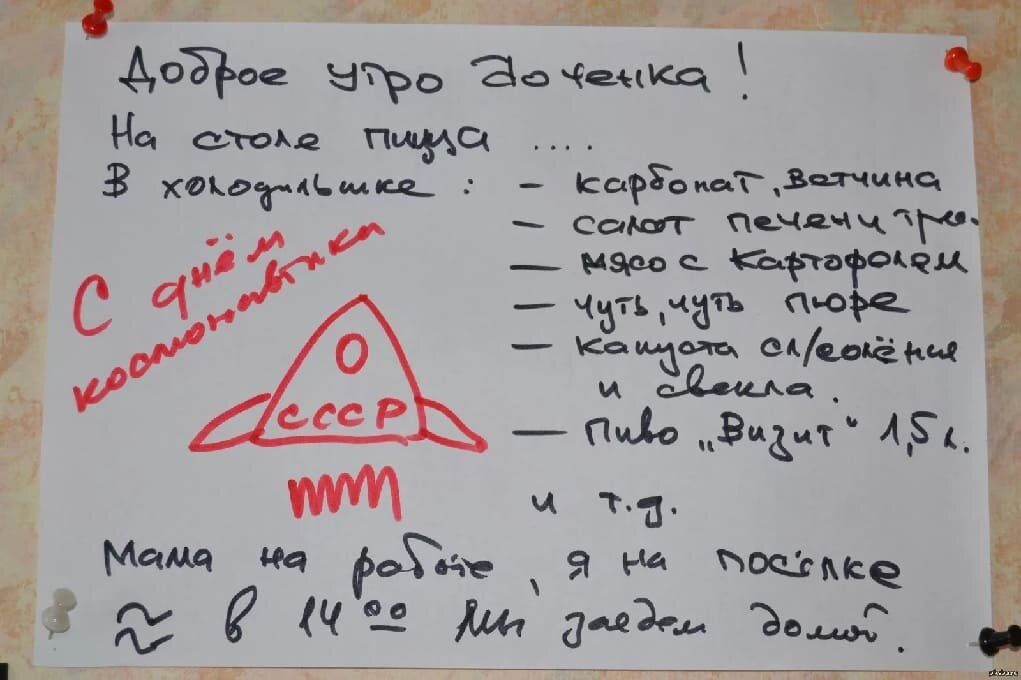 Доброе утро доченка!
На столе пицца ....
В холодильшке : – карбонат, ветчина
– салат печени трес.
С днём космонавтики
– мясо с картофелем
– чуть, чуть пюре
– капуста сл/солёная
и свекла.
О
СССР
– Пиво „Визит“ 1,5 л.
и т.д.
Мама на работе, я на посылке
≈ в 14 00 мы заедем домой.